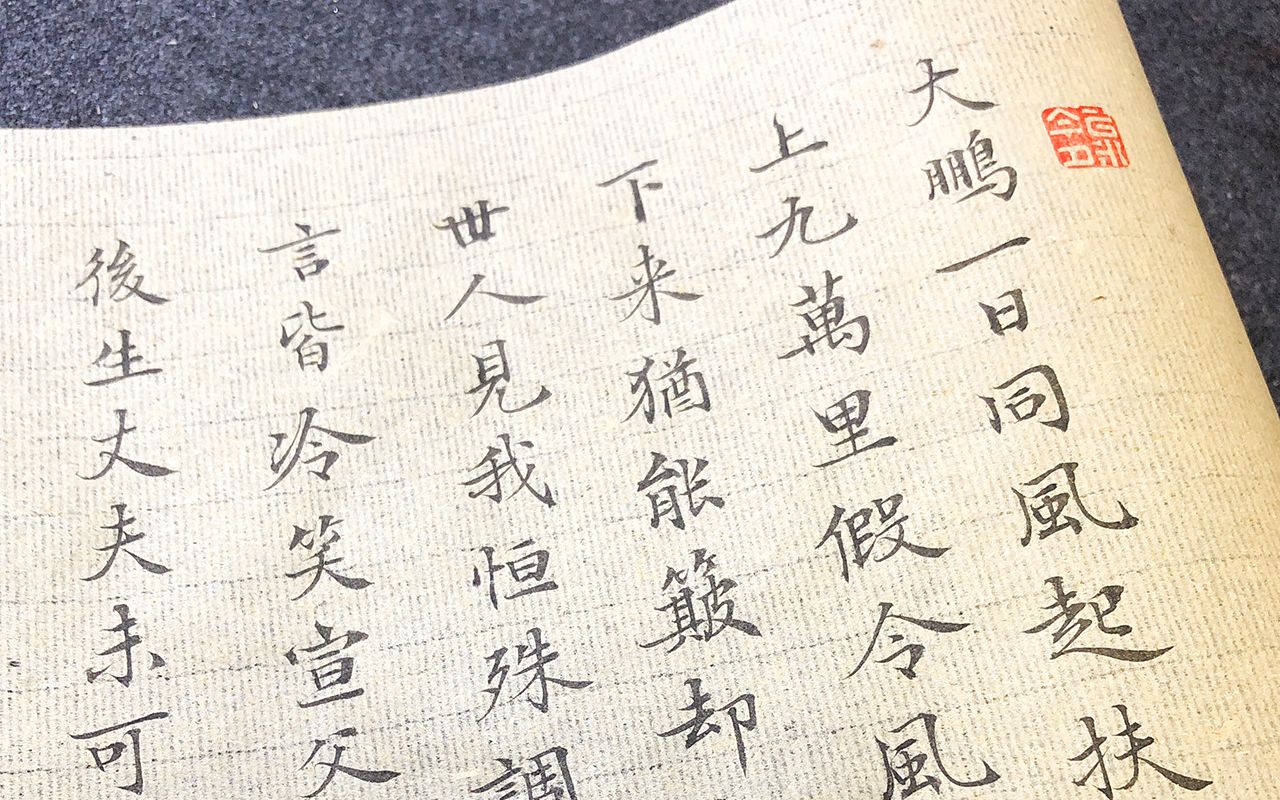 大鵬一日同風起扶
上九萬里假令風
下来猶能簸却
世人見我恒殊調
言皆冷笑宣父
後生丈夫未可